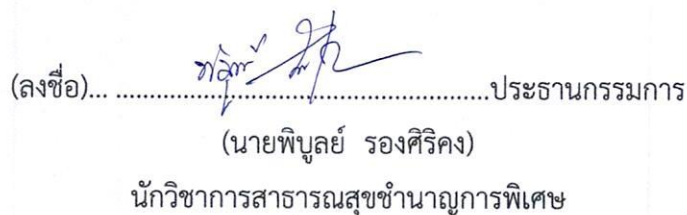 (ลงชื่อ)... ...................................................ประธานกรรมการ
(นายพิบูลย์ รองศิริคง)
นักวิชาการสาธารณสุขชำนาญการพิเศษ